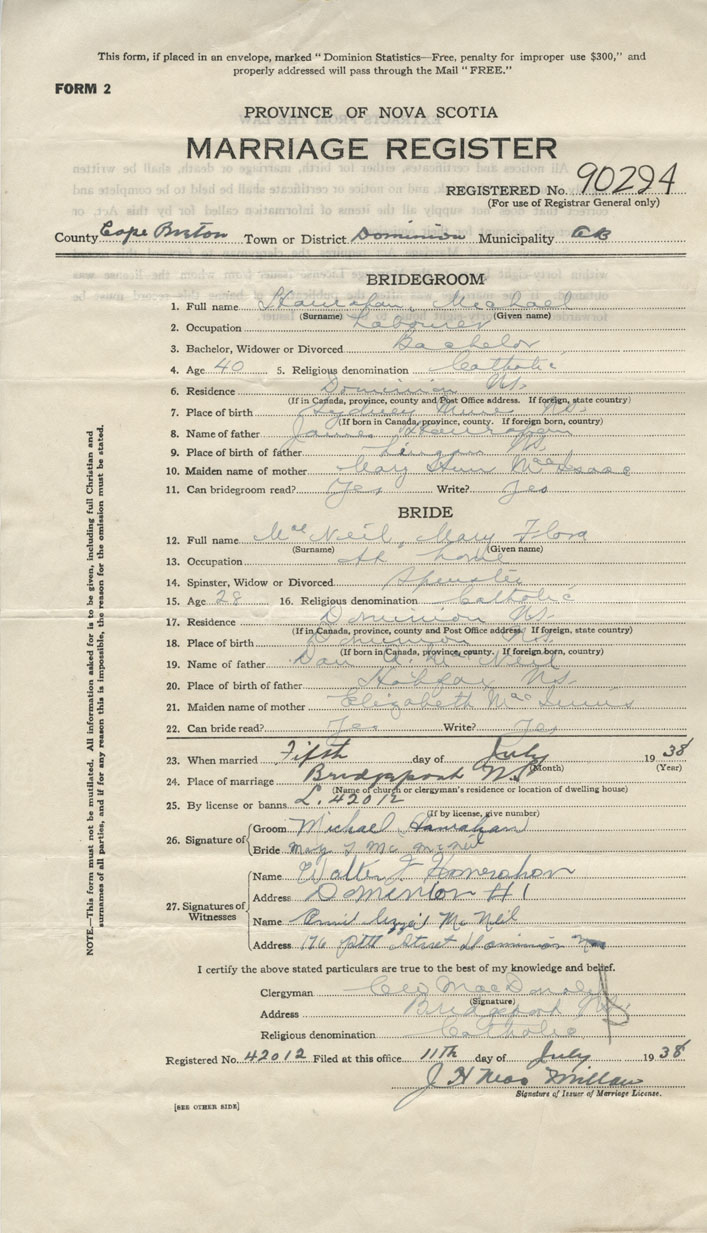 This form, if placed in an envelope, marked "Dominion Statistics—Free, penalty for improper use $300," and
properly addressed will pass through the Mail "FREE."
FORM 2
PROVINCE OF NOVA SCOTIA
MARRIAGE REGISTER
REGISTERED No. 90294
(For use of Registrar General only)
County Cape Breton Town or District Dominion Municipality CB
BRIDEGROOM
1. Full name Hanrahan, Michael
(Surname) (Given name)
2. Occupation Labourer
3. Bachelor, Widower or Divorced Bachelor
4. Age 40 5. Religious denomination Catholic
6. Residence Dominion NS.
(If in Canada, province, county and Post Office address. If foreign, state country)
7. Place of birth Sydney Mines NS.
(If born in Canada, province, county. If foreign born, country)
8. Name of father James Hanrahan
9. Place of birth of father Lingan NS.
10. Maiden name of mother Mary Ann MacIsaac
11. Can bridegroom read? Yes Write? Yes
BRIDE
12. Full name MacNeil, Mary Flora
(Surname) (Given name)
13. Occupation At home
14. Spinster, Widow or Divorced Spinster
15. Age 28 16. Religious denomination Catholic
17. Residence Dominion NS.
(If in Canada, province, county and Post Office address. If foreign, state country)
18. Place of birth Dominion NS.
(If born in Canada, province, county. If foreign born, country)
19. Name of father Dan A. McNeil
20. Place of birth of father NS.
21. Maiden name of mother Elizabeth MacInnis
22. Can bride read? Yes Write? Yes
23. When married Fifth day of July 1938
(Month) (Year)
24. Place of marriage Bridgeport N.S
(Name of church or clergyman's residence or location of dwelling house)
25. By license or banns L. 42012
(If by license, give number)
26. Signature of
Groom Michael Hanrahan
Bride Mary F Mc McNeil
27. Signatures of Witnesses
Name Walter F Hanrahan
Address Dominion #1
Name McNeil
Address 176 Street Dominion
I certify the above stated particulars are true to the best of my knowledge and belief.
Clergyman MacDonald
(Signature)
Address Bridgeport NS
Religious denomination Catholic
Registered No. 42012 Filed at this office 11TH day of July 1938
J H MacMillan
Signature of Issuer of Marriage License.
[SEE OTHER SIDE]
NOTE.—This form must not be mutilated. All information asked for is to be given, including full Christian and
surnames of all parties, and if for any reason this is impossible, the reason for the omission must be stated.